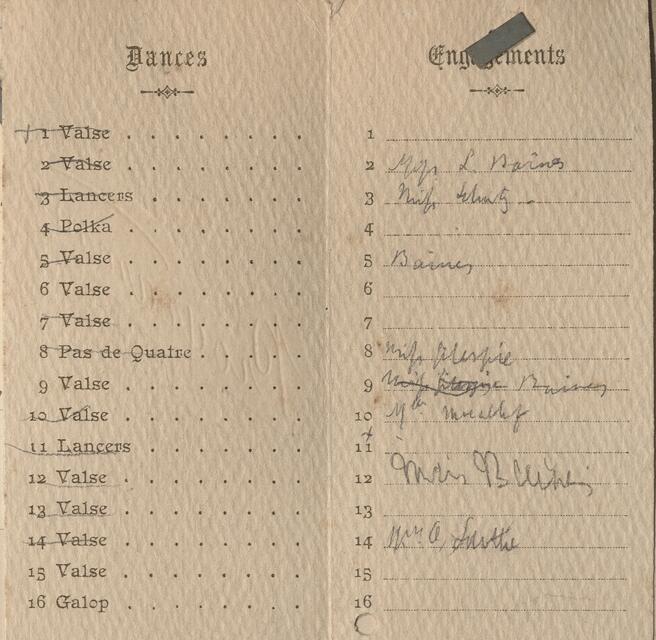 Dances
1 Valse
2 Valse
3 Lancers
4 Polka
5 Valse
6 Valse
7 Valse
8 Pas de Quatre
9 Valse
10 Valse
11 Lancers
12 Valse
13 Valse
14 Valse
15 Valse
16 Galop
Engagements
1
2 Miss L. Baines
3 Miss
4
5 Baines
6
7
8 Miss Gillespie
9 Miss Baines
10
11
12
13
14
15
16